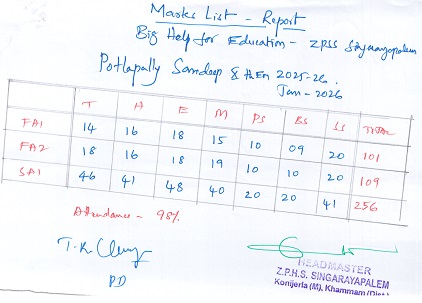 Marks List - Report
Big Help for Education - ZPSS Singarayapalem
Potlapally Samdeep 8th EM 2025-26.
Jan - 2026
T H E M PS BS SS TOTAL
FA1 14 16 18 15 10 09 20 101
FA2 18 16 18 19 10 10 20 109
SA1 46 41 48 40 20 20 41 256
Attendance - 98%
P.D
HEADMASTER
Z.P.H.S. SINGARAYAPALEM
Konijerla (M), Khammam (Dist.)